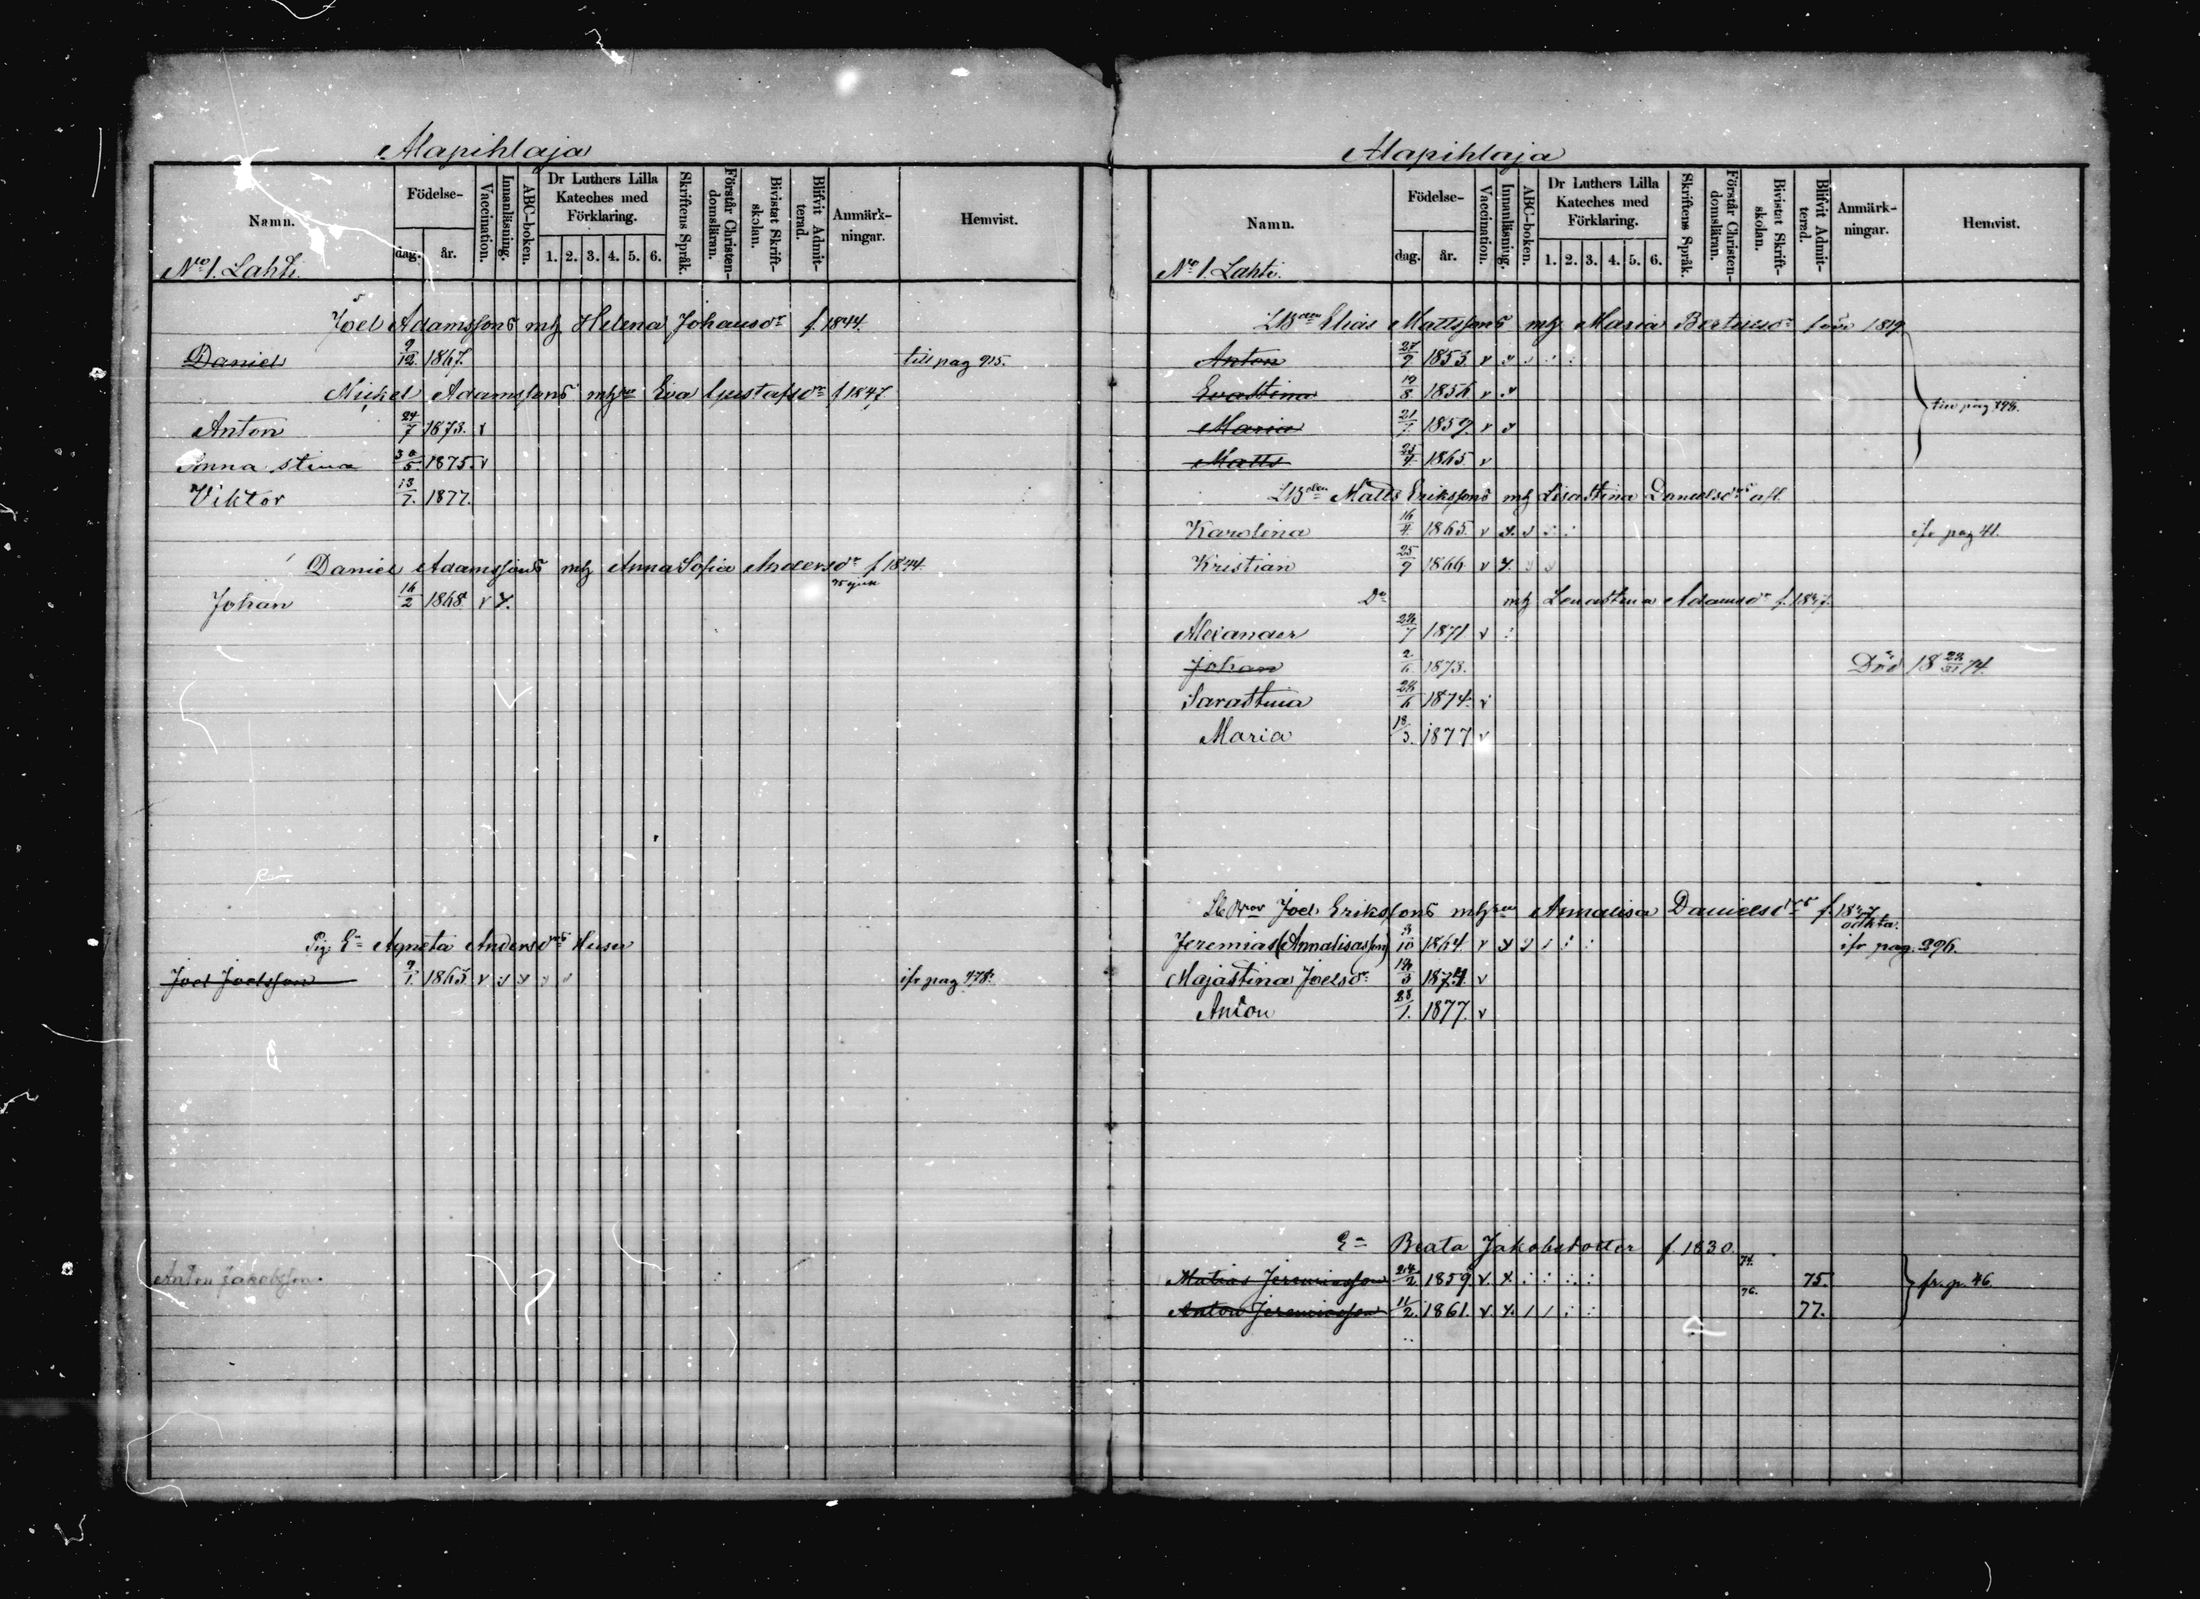 Alapihlaja
Namn. Födelse- dag. år. Vaccination. Innanläsning. ABC-boken. Dr Luthers Lilla Kateches med Förklaring. 1. 2. 3. 4. 5. 6. Skriftens Språk. Förstår Christen-domsläran. Bivistat Skrift-skolan. Blifvit Admit-terad. Anmärk-ningar. Hemvist.
No 1. Lahti.
Joel Adamssons mh Helena Johansdr f. 1844.
Daniel 9/12 1867. till pag 915.
Mickel Adamssons Eva Gustafsdr f 1847
Anton 24/7 1873. v
Anna Stina 30/5 1875. v
Viktor 13/7. 1877.
Daniel Adamssons mh Anna Sofia Andersdr f 1844.
Johan 16/2 1868 v
Agneta Andersdrs
Joel Joelsson 9/1 1863 v ifr pag 478.
Anton Jakobsson.
Alapihlaja
Namn. Födelse- dag. år. Vaccination. Innanläsning. ABC-boken. Dr Luthers Lilla Kateches med Förklaring. 1. 2. 3. 4. 5. 6. Skriftens Språk. Förstår Christen-domsläran. Bivistat Skrift-skolan. Blifvit Admit-terad. Anmärk-ningar. Hemvist.
No 1. Lahti.
Elias Mattssons mh Maria 1819
Anton 27/9 1853. v
Evastina 19/8 1856 v
Maria 21/7 1859. v
Matts 1865 v
Matts Erikssons mh Lisa Stina Danielsdrs
Karolina 16/4 1865. v ifr pag 41.
Kristian 25/9 1866 v
Do mh Lenastina Adamsdr
Alexander 1871 v
Johan 2/6 1873. Död 18 74.
Sarastina 1874. v
Maria 18/3. 1877 v
Joel Erikssons Annalisa Danielsdrs
Jeremias (Annalisasson) 3/10 1864. v ifr pag. 296.
Majastina Joelsdr 1874. v
Anton 28/1. 1877. v
Beata Jakobsdotter f. 1830.
Matias Jeremiasson 24/2 1859 v. 74. 75. fr. p. 46.
Anton Jeremiasson 11/2. 1861. v. 76. 77.